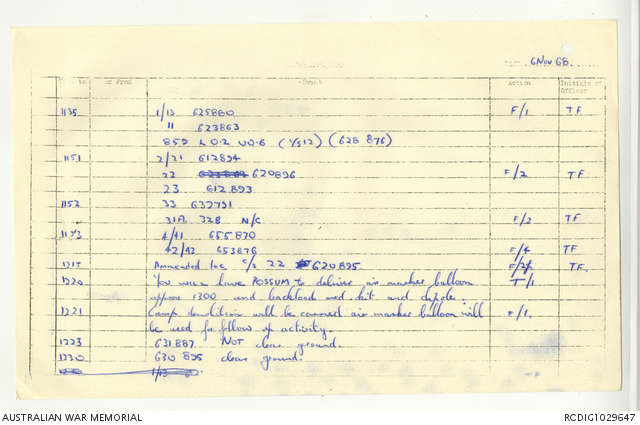 6 Nov 68.
Event Action Initials of Officer
1135 1/13 625880 F/1 TF
11 623863
859 LO.2 UO.6 (628 876)
1151 2/21 612894
22 620896 F/2 TF
23 612893
1152 33 632791
31A 32B N/C F/3 TF
1173 4/41 655870
42/43 653876 F/4 TF
1217 Ammended loc C/S 22 620895 TF
1220 You will have POSSUM to deliver air marker balloon T/1
approx 1300 and backload med kit and dipole.
1221 Camp demolition will be covered air marker balloon will F/1.
be used for follow up activity.
1223 631.887 NOT clear ground.
1230 630 895 clear ground.
1/13
AUSTRALIAN WAR MEMORIAL RCDIG1029647